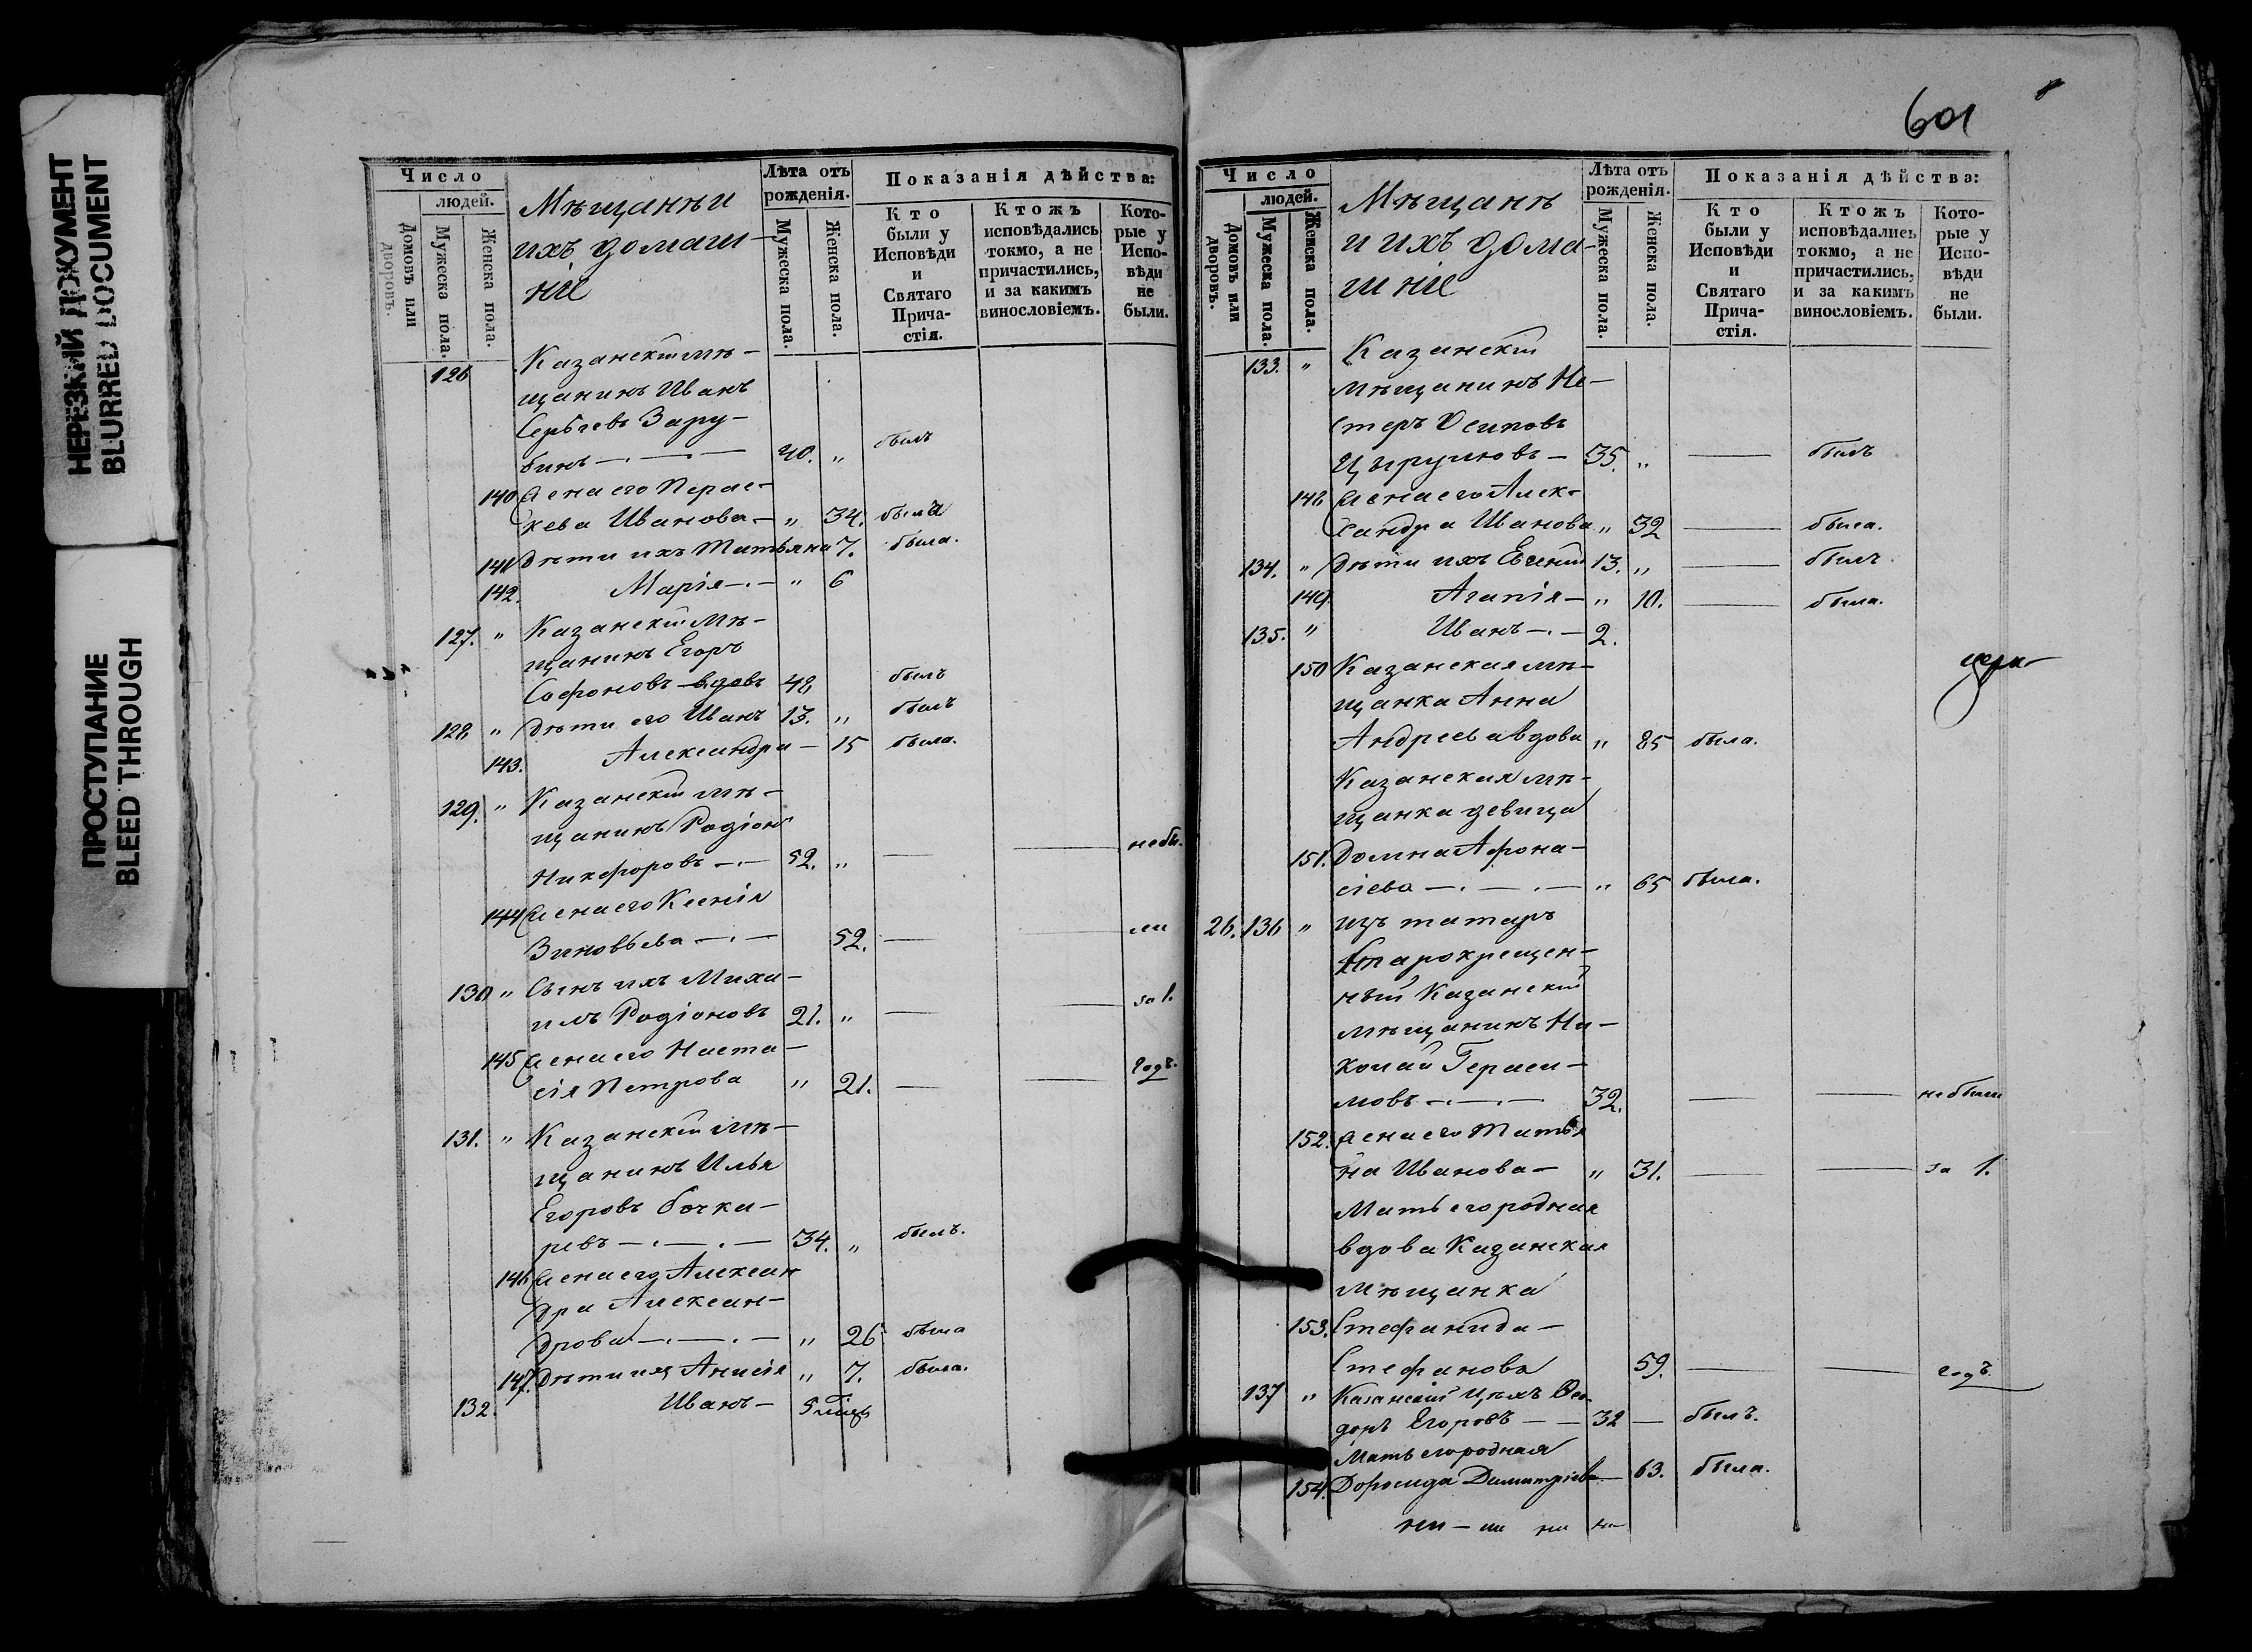 НЕРЕЗКИЙ ДОКУМЕНТ
BLURRED DOCUMENT
ПРОСТУПАНИЕ
BLEED THROUGH
Число
людей.
Домовъ или дворовъ.
Мужеска пола.
Женска пола.
Мѣщане и
ихъ домаш-
ніе
Лѣта отъ рожденія.
Мужеска пола.
Женска пола.
Показанія дѣйства:
Кто были у Исповѣди и Святаго Прича-стія.
Ктожъ исповѣдались токмо, а не причастились, и за какимъ винословіемъ.
Кото-рые у Испо-вѣди не были.
126 Казанскій мѣ-
щанинъ Иванъ
Сергѣевъ Зару-
бинъ 40. „ былъ
140 Жена его Парас-
кева Иванова „ 34. была
141 Дѣти ихъ Татьяна 7. была.
142. Марія „ 6
127. „ Казанскій мѣ-
щанинъ Егоръ
Софоновъ вдовъ 48 былъ
128 „ Дѣти его Иванъ 13. „ былъ
143. Александра 15 была.
129. „ Казанскій мѣ-
щанинъ Родіонъ
Никифоровъ 52. „ — — небы.
144 Жена его Ксенія
Зиновьева 52. — — ли
130 „ Сынъ ихъ Миха-
илъ Родіоновъ 21. „ — — за 1.
145 Жена его Наста-
сія Петрова „ 21. — — годъ.
131. „ Казанскій мѣ-
щанинъ Илья
Егоровъ Бочка-
ревъ 34. „ былъ.
146 Жена его Алексан
дра Алексан-
дрова „ 26 была
147. Дѣти ихъ Анисія „ 7. была.
132. Иванъ 5
601
Число
людей.
Домовъ или дворовъ.
Мужеска пола.
Женска пола.
Мѣщанѣ
и ихъ дома-
шніе
Лѣта отъ рожденія.
Мужеска пола.
Женска пола.
Показанія дѣйства:
Кто были у Исповѣди и Святаго Прича-стія.
Ктожъ исповѣдались токмо, а не причастились, и за какимъ винословіемъ.
Кото-рые у Испо-вѣди не были.
133. „ Казанскій
мѣщанинъ Не-
стеръ Осиповъ
35. „ — былъ
148 Жена его Алек-
сандра Иванова „ 32 — была.
134. „ Дѣти ихъ Евгеній 13. „ — былъ
149 Агапія „ 10. — была.
135. „ Иванъ 2.
150 Казанская мѣ-
щанка Анна
Андреева вдова „ 85 была.
Казанская мѣ-
щанка девица
151. Домна Афона-
сіева „ 65 была.
26. 136 „ изъ татаръ
Старокрещен-
ный Казанскій
мѣщанинъ Ни-
колай Гераси-
мовъ 32. — — небыли
152. Жена его Татья
на Иванова „ 31. — — за 1.
Мать его родная
вдова Казанская
мѣщанка
153. Стефанида
Стефанова 59. — — годъ.
137 „ Казанскій цѣхъ Ѳео-
доръ Егоровъ 32 — былъ.
Мать его родная
154. Дорофида Димитріева 63. была.